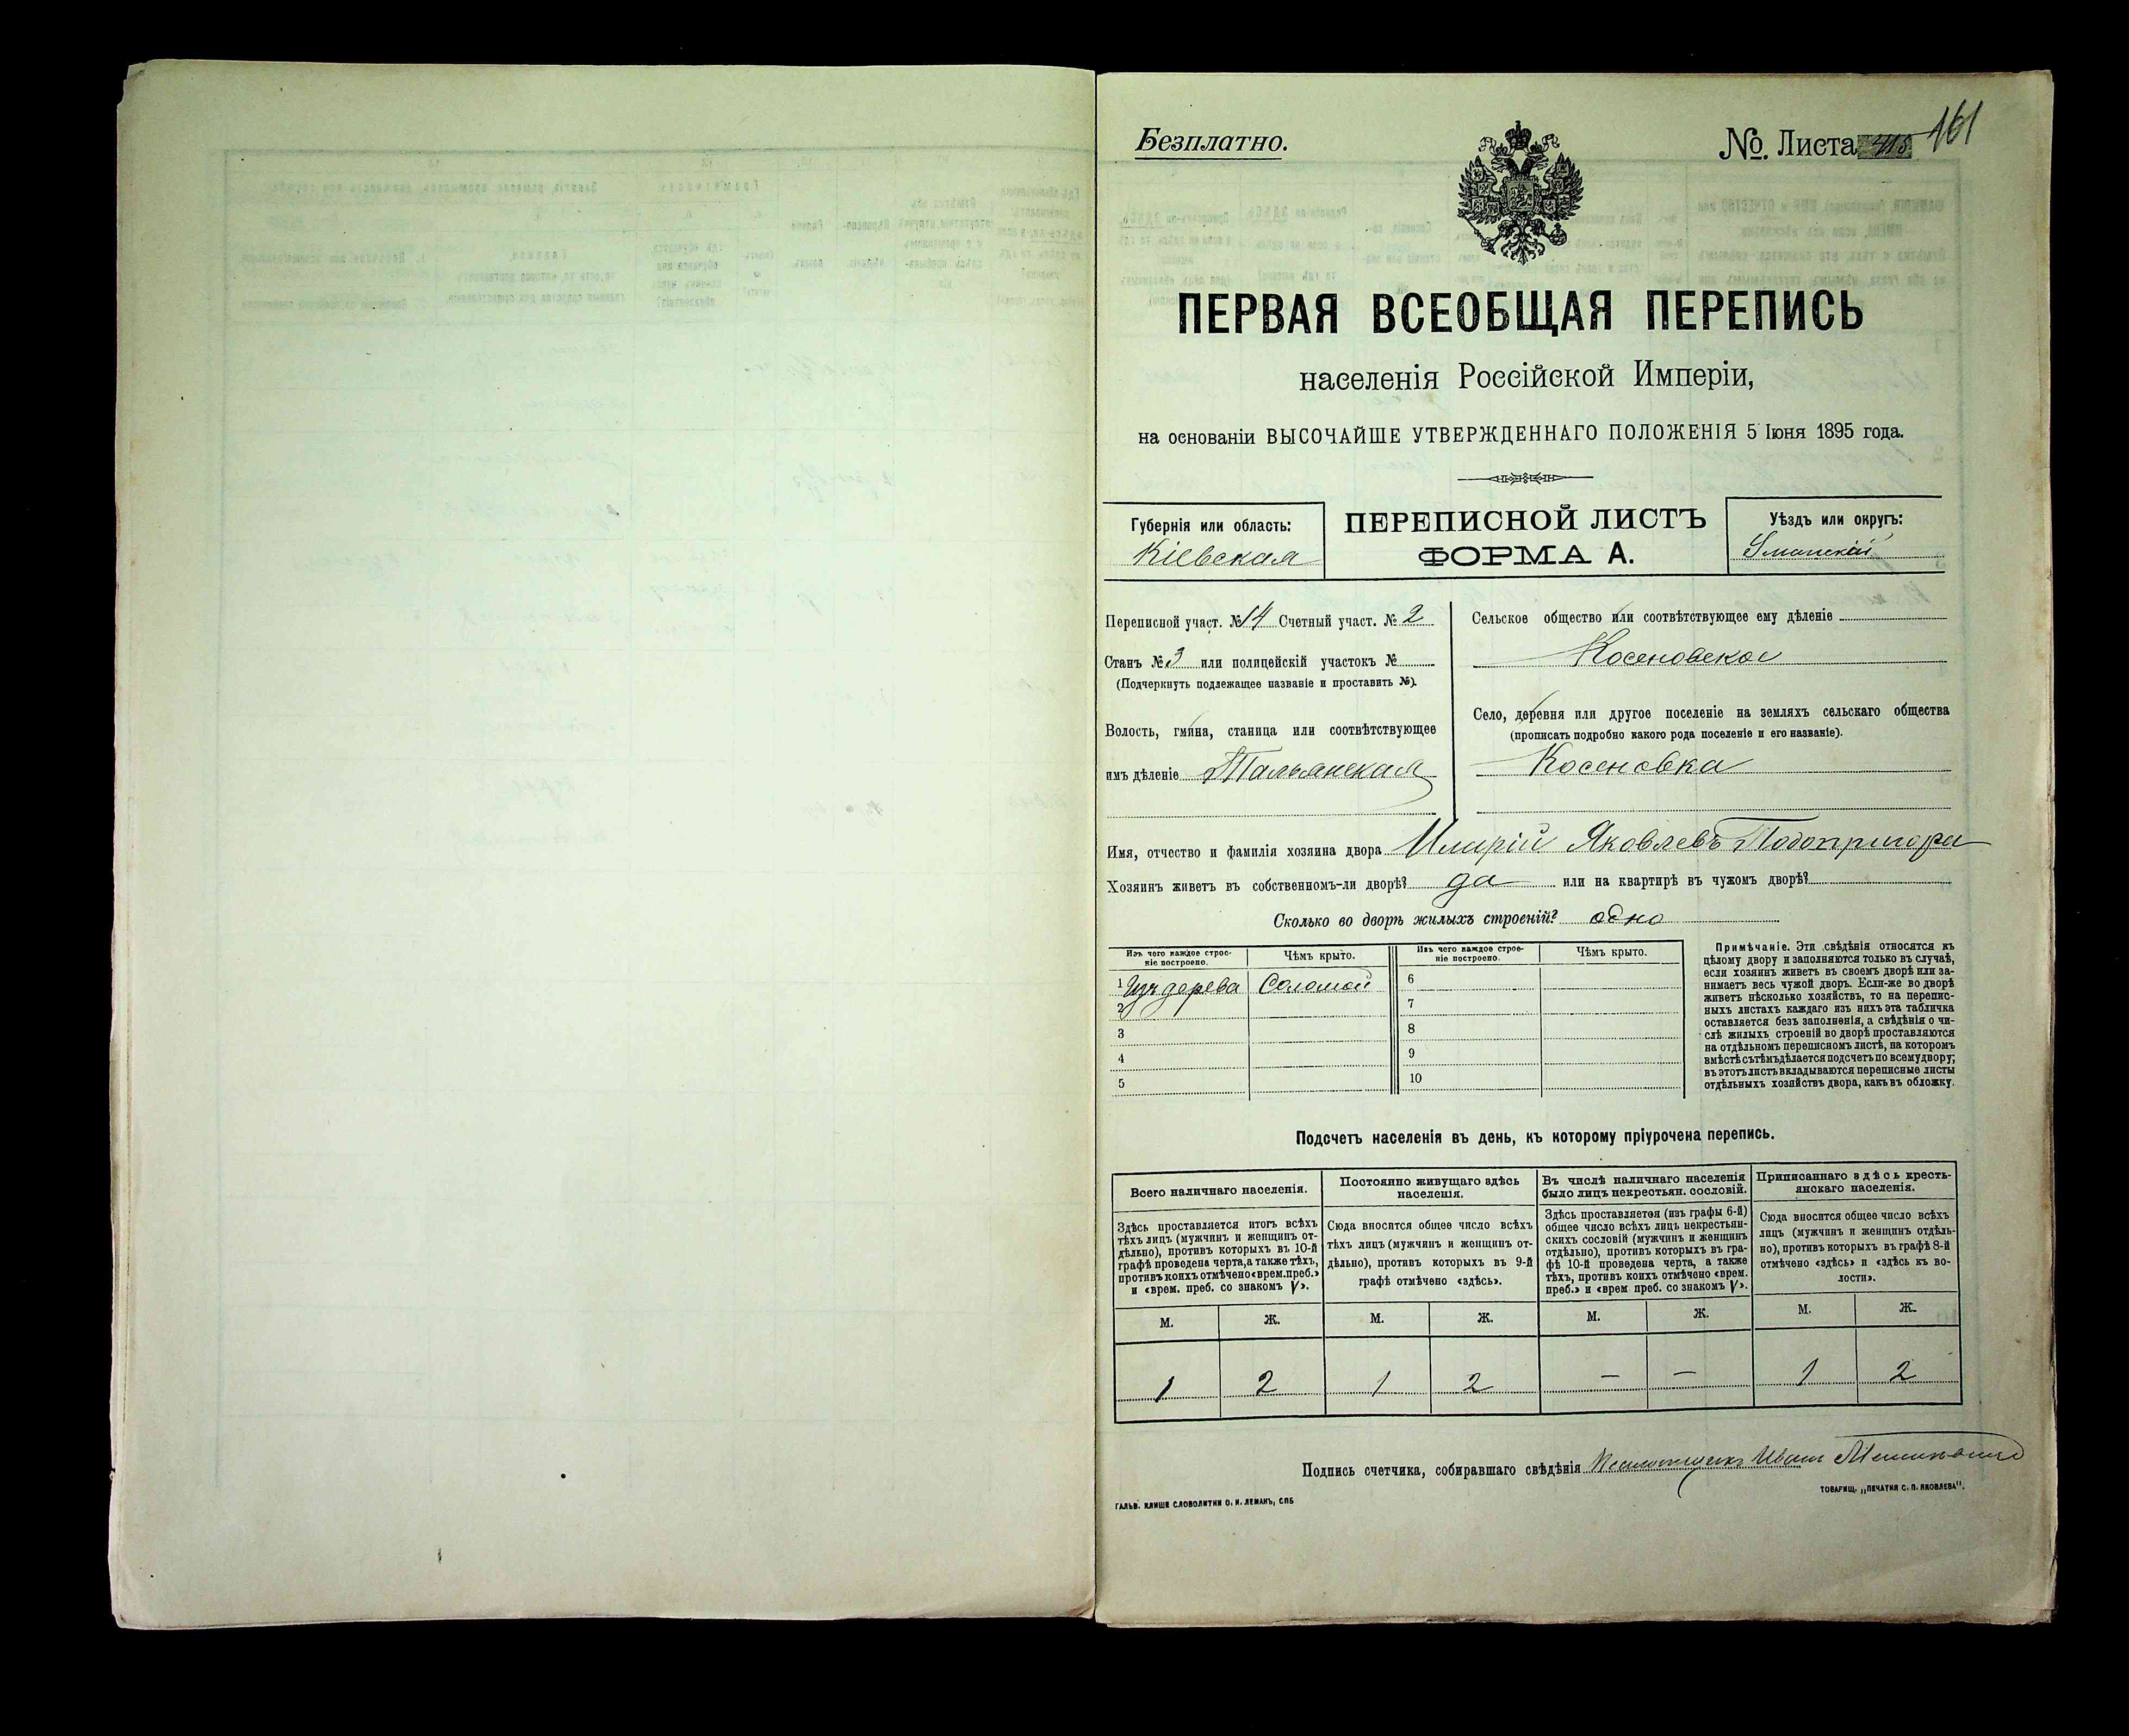 Безплатно.
№ Листа 161
ПЕРВАЯ ВСЕОБЩАЯ ПЕРЕПИСЬ
населенія Россійской Имперіи,
на основаніи ВЫСОЧАЙШЕ УТВЕРЖДЕННАГО ПОЛОЖЕНІЯ 5 Іюня 1895 года.
Губернія или область:
Кіевская
ПЕРЕПИСНОЙ ЛИСТЪ
ФОРМА А.
Уѣздъ или округъ:
Уманскій
Переписной участ. № 14 Счетный участ. № 2
Станъ № 3 или полицейскій участокъ №
(Подчеркнуть подлежащее названіе и проставить №).
Волость, гмина, станица или соотвѣтствующее
имъ дѣленіе Тальянская
Сельское общество или соотвѣтствующее ему дѣленіе
Косеновское
Село, деревня или другое поселеніе на земляхъ сельскаго общества
(прописать подробно какого рода поселеніе и его названіе).
Косеновка
Имя, отчество и фамилія хозяина двора Иларій Яковлевъ Подопригора
Хозяинъ живетъ въ собственномъ-ли дворѣ? да или на квартирѣ въ чужомъ дворѣ?
Сколько во дворѣ жилыхъ строеній? одно
Изъ чего каждое строе-
ніе построено.
Чѣмъ крыто.
Изъ чего каждое строе-
ніе построено.
Чѣмъ крыто.
1 Изъ дерева Соломой
2
3
4
5
6
7
8
9
10
Примѣчаніе. Эти свѣдѣнія относятся къ
цѣлому двору и заполняются только въ случаѣ,
если хозяинъ живетъ въ своемъ дворѣ или за-
нимаетъ весь чужой дворъ. Если-же во дворѣ
живетъ нѣсколько хозяйствъ, то на перепис-
ныхъ листахъ каждаго изъ нихъ эта табличка
оставляется безъ заполненія, а свѣдѣнія о чи-
слѣ жилыхъ строеній во дворѣ проставляются
на отдѣльномъ переписномъ листѣ, на которомъ
вмѣстѣ съ тѣмъ дѣлается подсчетъ по всему двору;
въ этотъ листъ вкладываются переписные листы
отдѣльныхъ хозяйствъ двора, какъ въ обложку.
Подсчетъ населенія въ день, къ которому пріурочена перепись.
Всего наличнаго населенія.
Здѣсь проставляется итогъ всѣхъ
тѣхъ лицъ (мужчинъ и женщинъ от-
дѣльно), противъ которыхъ въ 10-й
графѣ проведена черта, а также тѣхъ,
противъ коихъ отмѣчено «врем. преб.»
и «врем. преб. со знакомъ V».
Постоянно живущаго здѣсь
населенія.
Сюда вносится общее число всѣхъ
тѣхъ лицъ (мужчинъ и женщинъ от-
дѣльно), противъ которыхъ въ 9-й
графѣ отмѣчено «здѣсь».
Въ числѣ наличнаго населенія
было лицъ некрестьян. сословій.
Здѣсь проставляется (изъ графы 6-й)
общее число всѣхъ лицъ некрестьян-
скихъ сословій (мужчинъ и женщинъ
отдѣльно), противъ которыхъ въ гра-
фѣ 10-й проведена черта, а также
тѣхъ, противъ коихъ отмѣчено «врем.
преб.» и «врем преб. со знакомъ V».
Приписаннаго здѣсь кресть-
янскаго населенія.
Сюда вносится общее число всѣхъ
лицъ (мужчинъ и женщинъ отдѣль-
но), противъ которыхъ въ графѣ 8-й
отмѣчено «здѣсь» и «здѣсь къ во-
лости».
М. Ж. М. Ж. М. Ж. М. Ж.
1 2 1 2 — — 1 2
Подпись счетчика, собиравшаго свѣдѣнія Иван
ГАЛЬВ. КЛИШЕ СЛОВОЛИТНИ О. И. ЛЕМАНЪ, СПБ
ТОВАРИЩ. „ПЕЧАТНЯ С. П. ЯКОВЛЕВА".